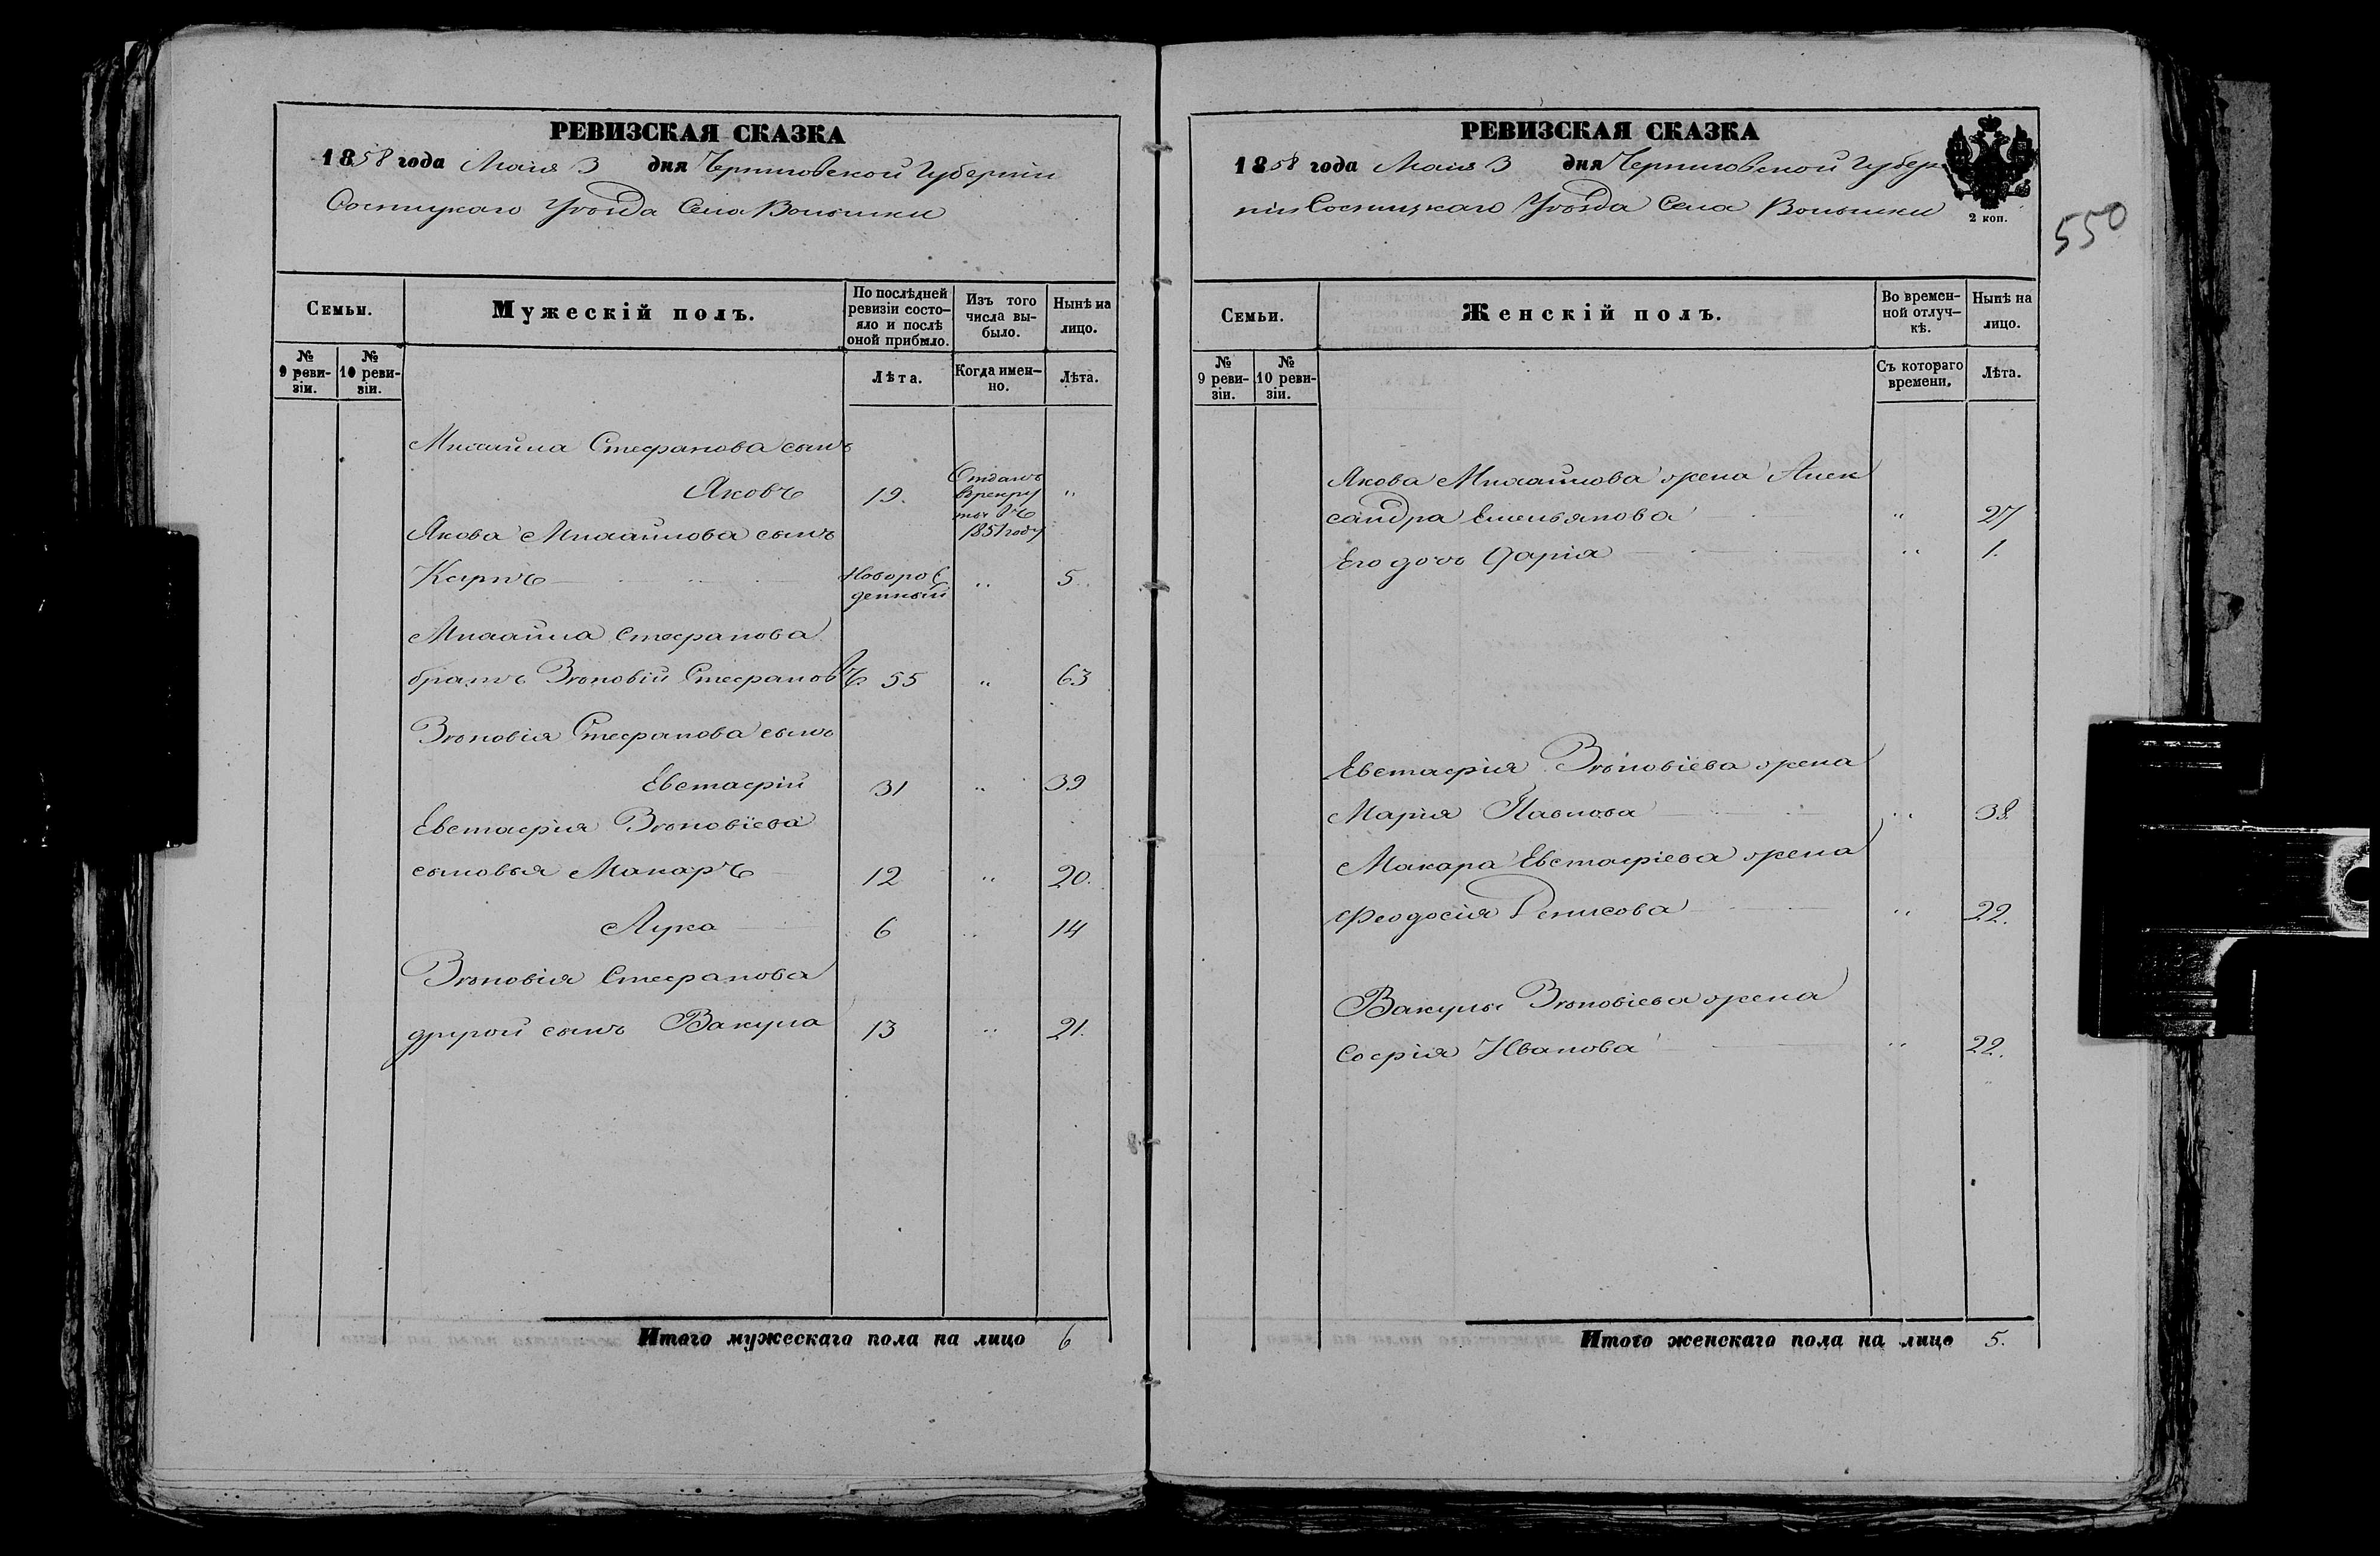 РЕВИЗСКАЯ СКАЗКА
1858 года Маія 3 дня Черниговской Губерніи
Сосницкаго Уѣзда Села Волынки
Семьи.
Мужескій полъ.
По послѣдней ревизіи состо-
яло и послѣ оной прибыло.
Изъ того числа вы-
было.
Нынѣ на лицо.
№ 9 реви-
зіи.
№ 10 реви-
зіи.
Лѣта.
Когда имен-
но.
Лѣта.
Михаила Стефанова сынъ
Яковъ 19. Отданъ
в рекру
ты въ
1851 году "
Якова Михайлова сынъ
Карпъ Новорож
денный " 5.
Михаила Стефанова
братъ Зѣновій Стефановъ 55 " 63
Зѣновія Стефанова сынъ
Евстафій 31 " 39
Евстафія Зѣновіева
сыновья Макаръ 12 " 20.
Лука 6 " 14
Зѣновія Стефанова
другой сынъ Вакула 13 " 21.
Итого мужескаго пола на лицо 6
РЕВИЗСКАЯ СКАЗКА
1858 года Маія 3 дня Черниговской Губер
ніи Сосницкаго Уѣзда Села Волынки
2 коп.
550
Семьи.
Женскій полъ.
Во времен-
ной отлуч-
кѣ.
Нынѣ на лицо.
№ 9 реви-
зіи.
№ 10 реви-
зіи.
Съ котораго времени.
Лѣта.
Якова Михайлова жена Алек
сандра Емельянова " 27
Его дочь Дарія " 1.
Евстафія Зѣновіева жена
Марія Павлова " 38.
Макара Евстафіева жена
Феодосія Денисова " 22.
Вакулы Зѣновіева жена
Софія Иванова " 22.
Итого женскаго пола на лицо 5.